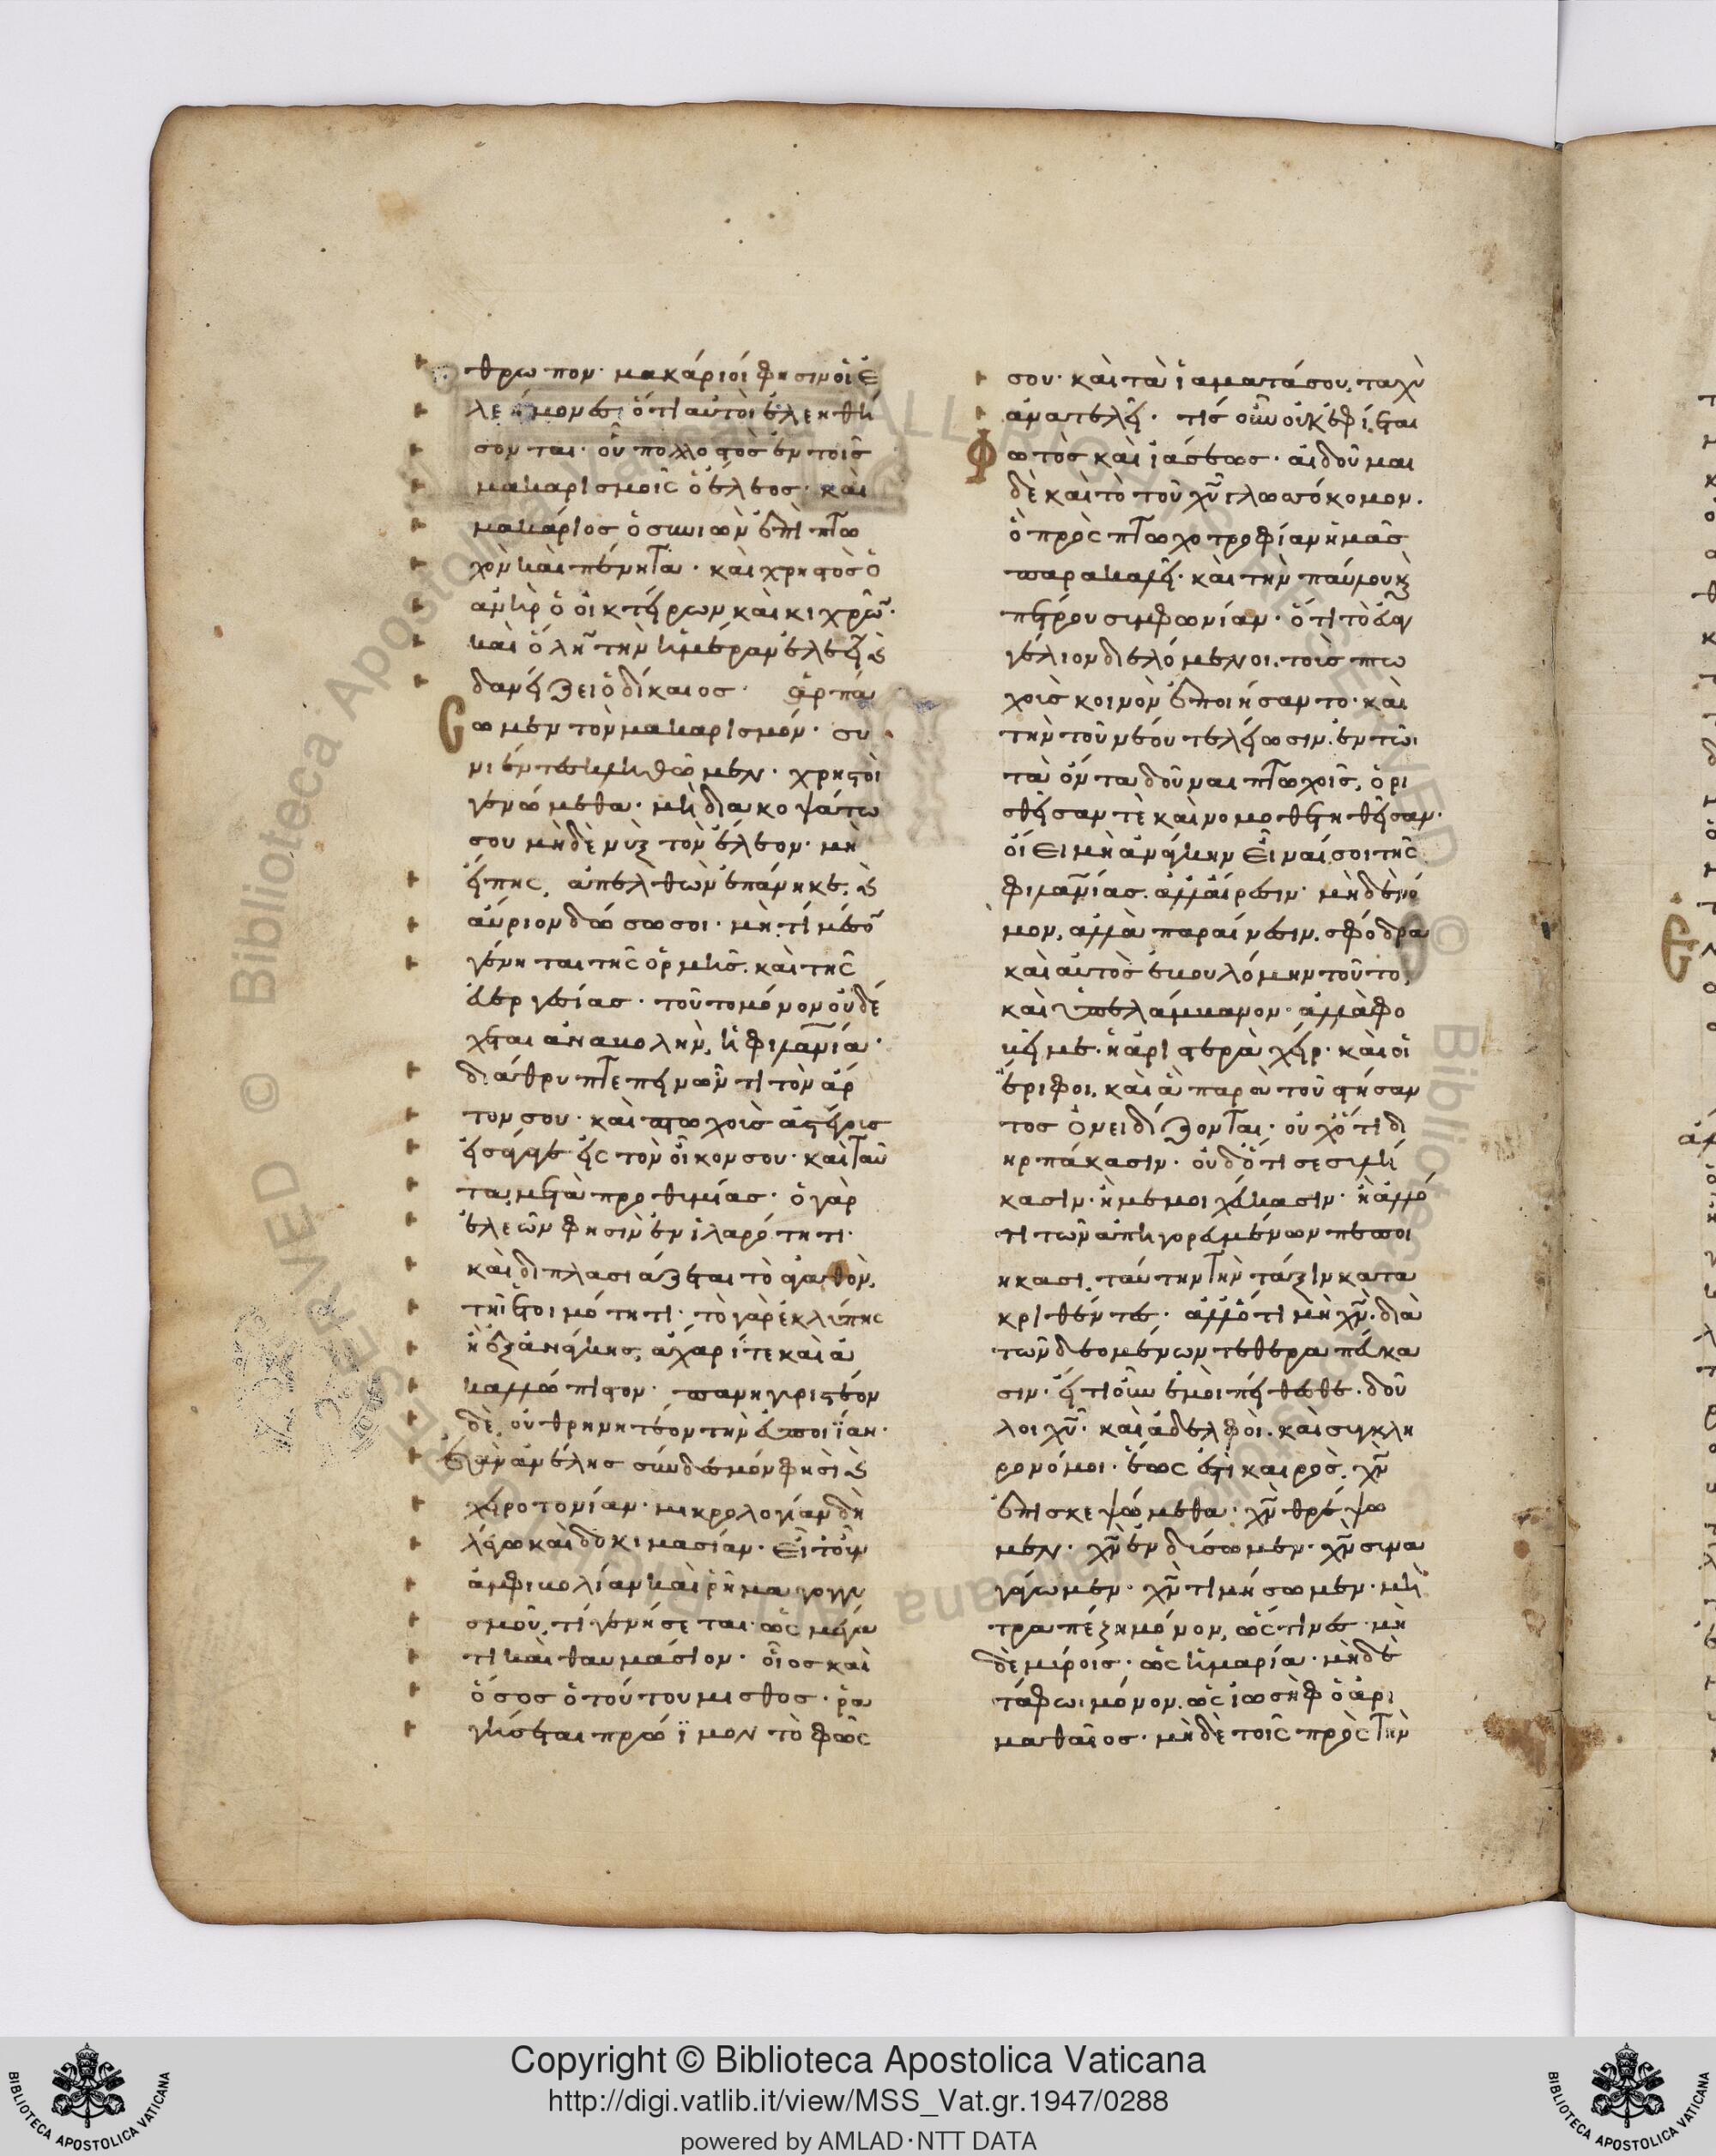 θρωπον· μακάριοί φησιν οἱ ἐ
λεήμονες ὅτι αὐτοὶ ἐλεηθή
σονται· οὐ πολλοστὸς ἐν τοῖς
μακαρισμοῖς ὁ ἔλεος· καὶ
μακάριος ὁ συνιὼν ἐπὶ πτω
χὸν καὶ πένητα· καὶ χρηστὸς ὁ
ἀνὴρ ὁ οἰκτείρων καὶ κιχρῶν·
καὶ ὅλην τὴν ἡμέραν ἐλεεῖ καὶ
δανείζει ὁ δίκαιος· ἁρπά
σωμεν τὸν μακαρισμόν· συ
νιέντες κληθῶμεν· χρηστοὶ
γενώμεθα· μὴ διακοψάτω
σου μηδὲ νὺξ τὸν ἔλεον· μὴ
εἴπης, ἀπελθὼν ἐπάνηκε, καὶ
αὔριον δώσω σοι· μή τι μέσον
γένηται τῆς ὁρμῆς, καὶ τῆς
εὐεργεσίας· τοῦτο μόνον οὐ δέ
χεται ἀναβολὴν, ἡ φιλανία·
διάθρυπτε πεινῶντι τὸν ἄρ
τον σου· καὶ πτωχοὺς ἀστέγους
εἴσαγε εἰς τὸν οἶκον σου· καὶ ταῦ
τα, μετὰ προθυμίας· ὁ γὰρ
ἐλεῶν φησὶν ἐν ἱλαρότητι·
καὶ διπλασιάζεται τὸ ἀγαθὸν,
τῆι ἑτοιμότητι· τὸ γὰρ ἐκ λύπης
ἢ ἐξ ἀνάγκης, ἄχαρί τε καὶ ἀ
καλλώπιστον· πανηγυριστέον
δὲ, οὐ θρηνητέον τὴν εὐποιΐαν·
ἐὰν ἀνέλης σύνδεσμόν φησὶ καὶ
χειροτονίαν· μικρολογίαν δὴ
λέγω καὶ δοκιμασίαν· εἴτ' οὖν
ἀμφιβολίαν καὶ ῥῆμα γογγυ
σμοῦ, τί γενήσεται· ὡς μέγα
τι καὶ θαυμάσιον· οἷος καὶ
ὅσος ὁ τούτου μισθος· ῥα
γήσεται πρώϊμον τὸ φῶς
σου· καὶ τὰ ἰάματά σου, ταχὺ
ἀνατελεῖ· τίς οὖν οὐκ ἐφίεται
φωτὸς καὶ ἰάσεως· αἰδοῦμαι
δὲ καὶ τὸ τοῦ χῦ γλωσσόκομον.
ὃ πρὸς πτωχοτροφίαν ἡμᾶς
παρακαλεῖ· καὶ τὴν παύλου καὶ
πέτρου συμφωνίαν· ὅτι τὸ εὐαγ
γέλιον διελόμενοι, τοὺς πτω
χοὺς κοινὸν ἐποιήσαντο· καὶ
τὴν τοῦ νέου τελείωσιν, ἐν τῶι
τὰ ὄντα δοῦναι πτωχοῖς, ὁρι
σθεῖσαν τὲ καὶ νομοθετηθεῖσαν·
οἴει μὴ ἀνάγκην εἶναί σοι τῆς
φιλανίας, ἀλλ' αἵρεσιν· μηδὲ νό
μον, ἀλλὰ παραίνεσιν, σφόδρα
καὶ αὐτὸς ἐβουλόμην τοῦτο,
καὶ ὑπελάμβανον· ἀλλὰ φο
βεῖ με· ἡ ἀριστερὰ χείρ· καὶ οἱ
ἔριφοι, καὶ ἃ παρὰ τοῦ στήσαν
τος ὀνειδίζονται· οὐχ ὅτι δι
ηρπάκασιν· οὐδ' ὅτι σεσυλή
κασιν· ἢ μεμοιχεύκασιν· ἢ ἄλλό
τι τῶν ἀπηγορευμένων πεποι
ήκασι, ταύτην τὴν τάξιν κατα
κριθέντες· ἀλλ' ὅτι μὴ χν, διὰ
τῶν δεομένων τεθεραπεύκα
σιν· εἴ τι οὖν ἐμοὶ πείθεσθε, δοῦ
λοι χῦ· καὶ ἀδελφοὶ, καὶ συγκλη
ρονόμοι· ἕως ἐστὶ καιρὸς, χν
ἐπισκεψώμεθα· χν θρέψω
μεν· χν ἐνδύσωμεν· χν συνα
γάγωμεν· χν τιμήσωμεν· μὴ
τραπέζη μόνον, ὥς τινες· μη
δὲ μύροις· ὡς ἡ μαρία· μηδὲ
τάφωι μόνον, ὡς ἰωσὴφ ὁ ἀρι
μαθαῖος· μηδὲ τοῖς πρὸς τὴν
Copyright © Biblioteca Apostolica Vaticana
http://digi.vatlib.it/view/MSS_Vat.gr.1947/0288
powered by AMLAD·NTT DATA
BIBLIOTECA APOSTOLICA VATICANA
BIBLIOTECA APOSTOLICA VATICANA